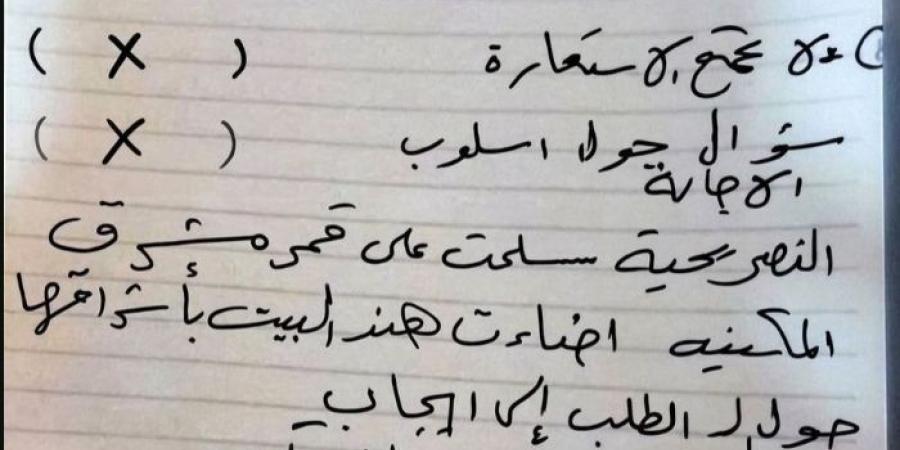 علا تجتمع الاستعارة ( X )
سؤال حول اسلوب ( X )
الاجابة
التصريحية سلمت على قمر مشرق
المكنيه اضاءت هند البيت بأشراقها
حول الطلب إلى ايجابي